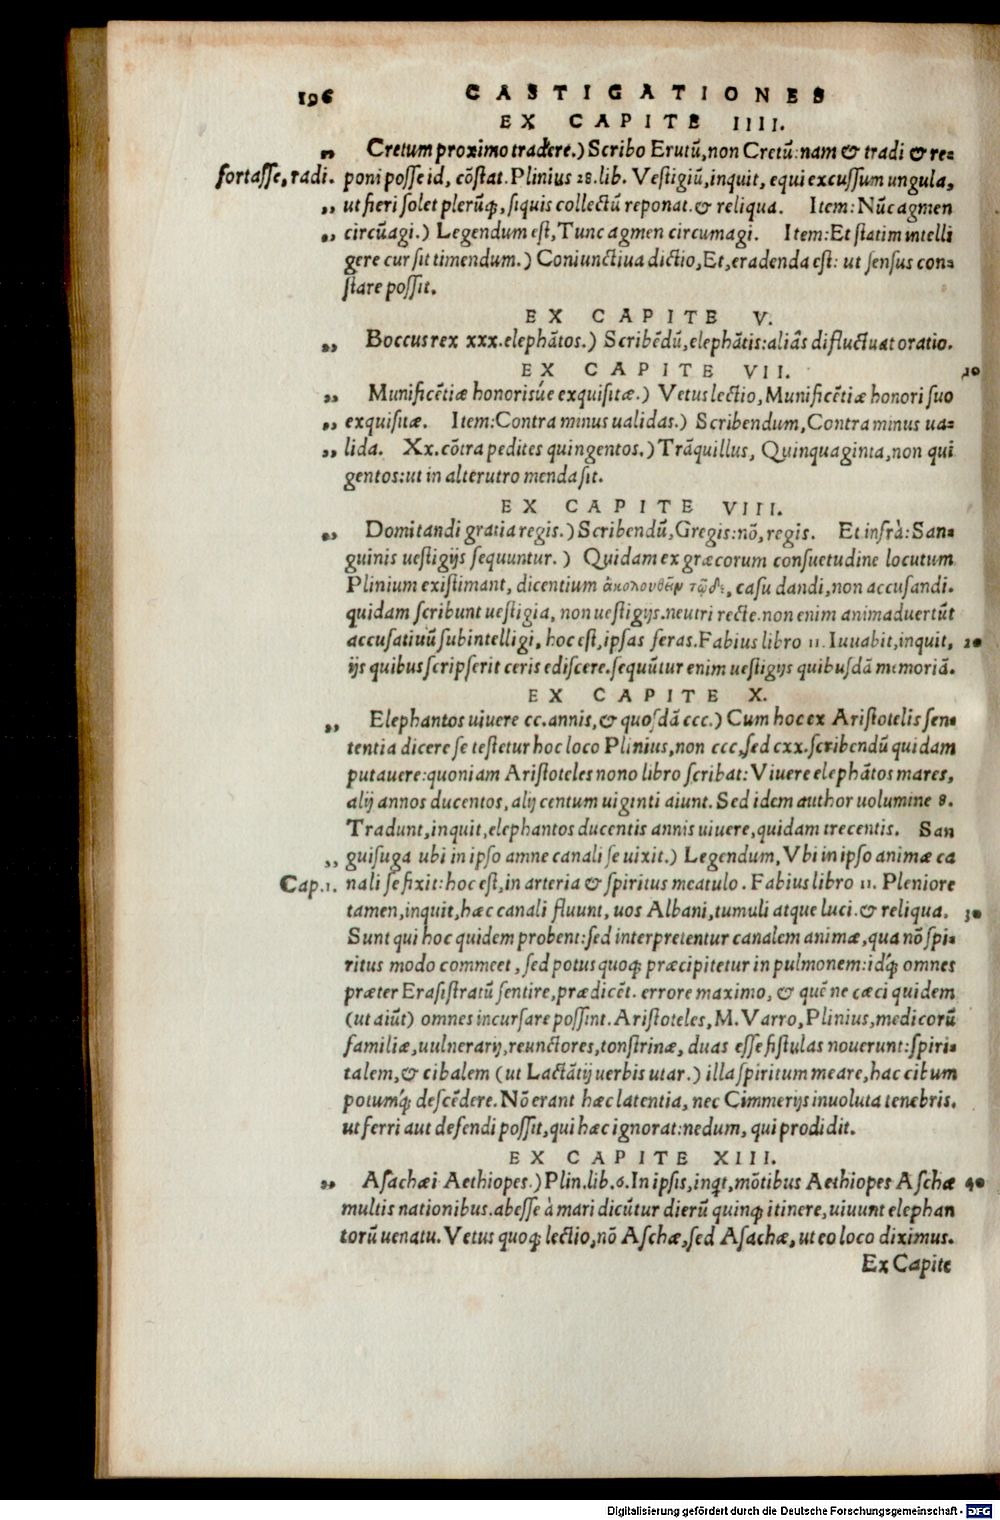 196 CASTIGATIONES
EX CAPITE IIII.
„ Cretum proximo tradere.) Scribo Erutũ, non Cretũ: nam & tradi & re=
fortasse, radi. poni posse id, cõstat. Plinius 28. lib. Vestigiũ, inquit, equi excussum ungula,
„ ut fieri solet plerũq́;, siquis collectũ reponat. & reliqua. Item: Nũc agmen
„ circũagi.) Legendum est, Tunc agmen circumagi. Item: Et statim intelli
gere cur sit timendum.) Coniunctiua dictio, Et, eradenda est: ut sensus con=
stare possit.
EX CAPITE V.
„ Boccus rex xxx. elephãtos.) Scribẽdũ, elephãtis: aliâs difluctuat oratio.
EX CAPITE VII. 10
„ Munificẽtiæ honorisúe exquisitæ.) Vetus lectio, Munificẽtiæ honori suo
„ exquisitæ. Item: Contra minus ualidas.) Scribendum, Contra minus ua=
„ lida. Xx. cõtra pedites quingentos.) Trãquillus, Quinquaginta, non qui
gentos: ut in alterutro menda sit.
EX CAPITE VIII.
„ Domitandi gratia regis.) Scribendũ, Gregis: nõ, regis. Et infrà: San=
guinis uestigijs sequuntur.) Quidam ex græcorum consuetudine locutum
Plinium existimant, dicentium ἀκολουθεῖν τῷδε, casu dandi, non accusandi.
quidam scribunt uestigia, non uestigijs. neutri recte. non enim animaduertũt
accusatiuũ subintelligi, hoc est, ipsas feras. Fabius libro 11. Iuuabit, inquit, 20
ijs quibus scripserit ceris ediscere. sequũtur enim uestigijs quibusdã memoriã.
EX CAPITE X.
„ Elephantos uiuere cc. annis, & quosdã ccc.) Cum hoc ex Aristotelis sen=
tentia dicere se testetur hoc loco Plinius, non ccc, sed cxx. scribendũ quidam
putauere: quoniam Aristoteles nono libro scribat: Viuere elephãtos mares,
alij annos ducentos, alij centum uiginti aiunt. Sed idem author uolumine 8.
Tradunt, inquit, elephantos ducentis annis uiuere, quidam trecentis. San
„ guisuga ubi in ipso amne canali se uixit.) Legendum, Vbi in ipso animæ ca
Cap. 1. nali se fixit: hoc est, in arteria & spiritus meatulo. Fabius libro 11. Pleniore
tamen, inquit, hæc canali fluunt, uos Albani, tumuli atque luci. & reliqua. 30
Sunt qui hoc quidem probent: sed interpretentur canalem animæ, qua nõ spi=
ritus modo commeet, sed potus quoq; præcipitetur in pulmonem: idq́; omnes
præter Erasistratũ sentire, prædicẽt. errore maximo, & quẽ ne cæci quidem
(ut aiũt) omnes incursare possint. Aristoteles, M. Varro, Plinius, medicorũ
familiæ, uulnerarij, reunctores, tonstrinæ, duas esse fistulas nouerunt: spiri=
talem, & cibalem (ut Lactãtij uerbis utar.) illa spiritum meare, hac cibum
potumq́; descẽdere. Nõ erant hæc latentia, nec Cimmerijs inuoluta tenebris.
ut ferri aut defendi possit, qui hæc ignorat: nedum, qui prodidit.
EX CAPITE XIII.
„ Asachæi Aethiopes.) Plin. lib. 6. In ipsis, inqt, mõtibus Aethiopes Aschæ 40
multis nationibus. abesse à mari dicũtur dierũ quinq; itinere, uiuunt elephan
torũ uenatu. Vetus quoq; lectio, nõ Aschæ, sed Asachæ, ut eo loco diximus.
Ex Capite
Digitalisierung gefördert durch die Deutsche Forschungsgemeinschaft - DFG